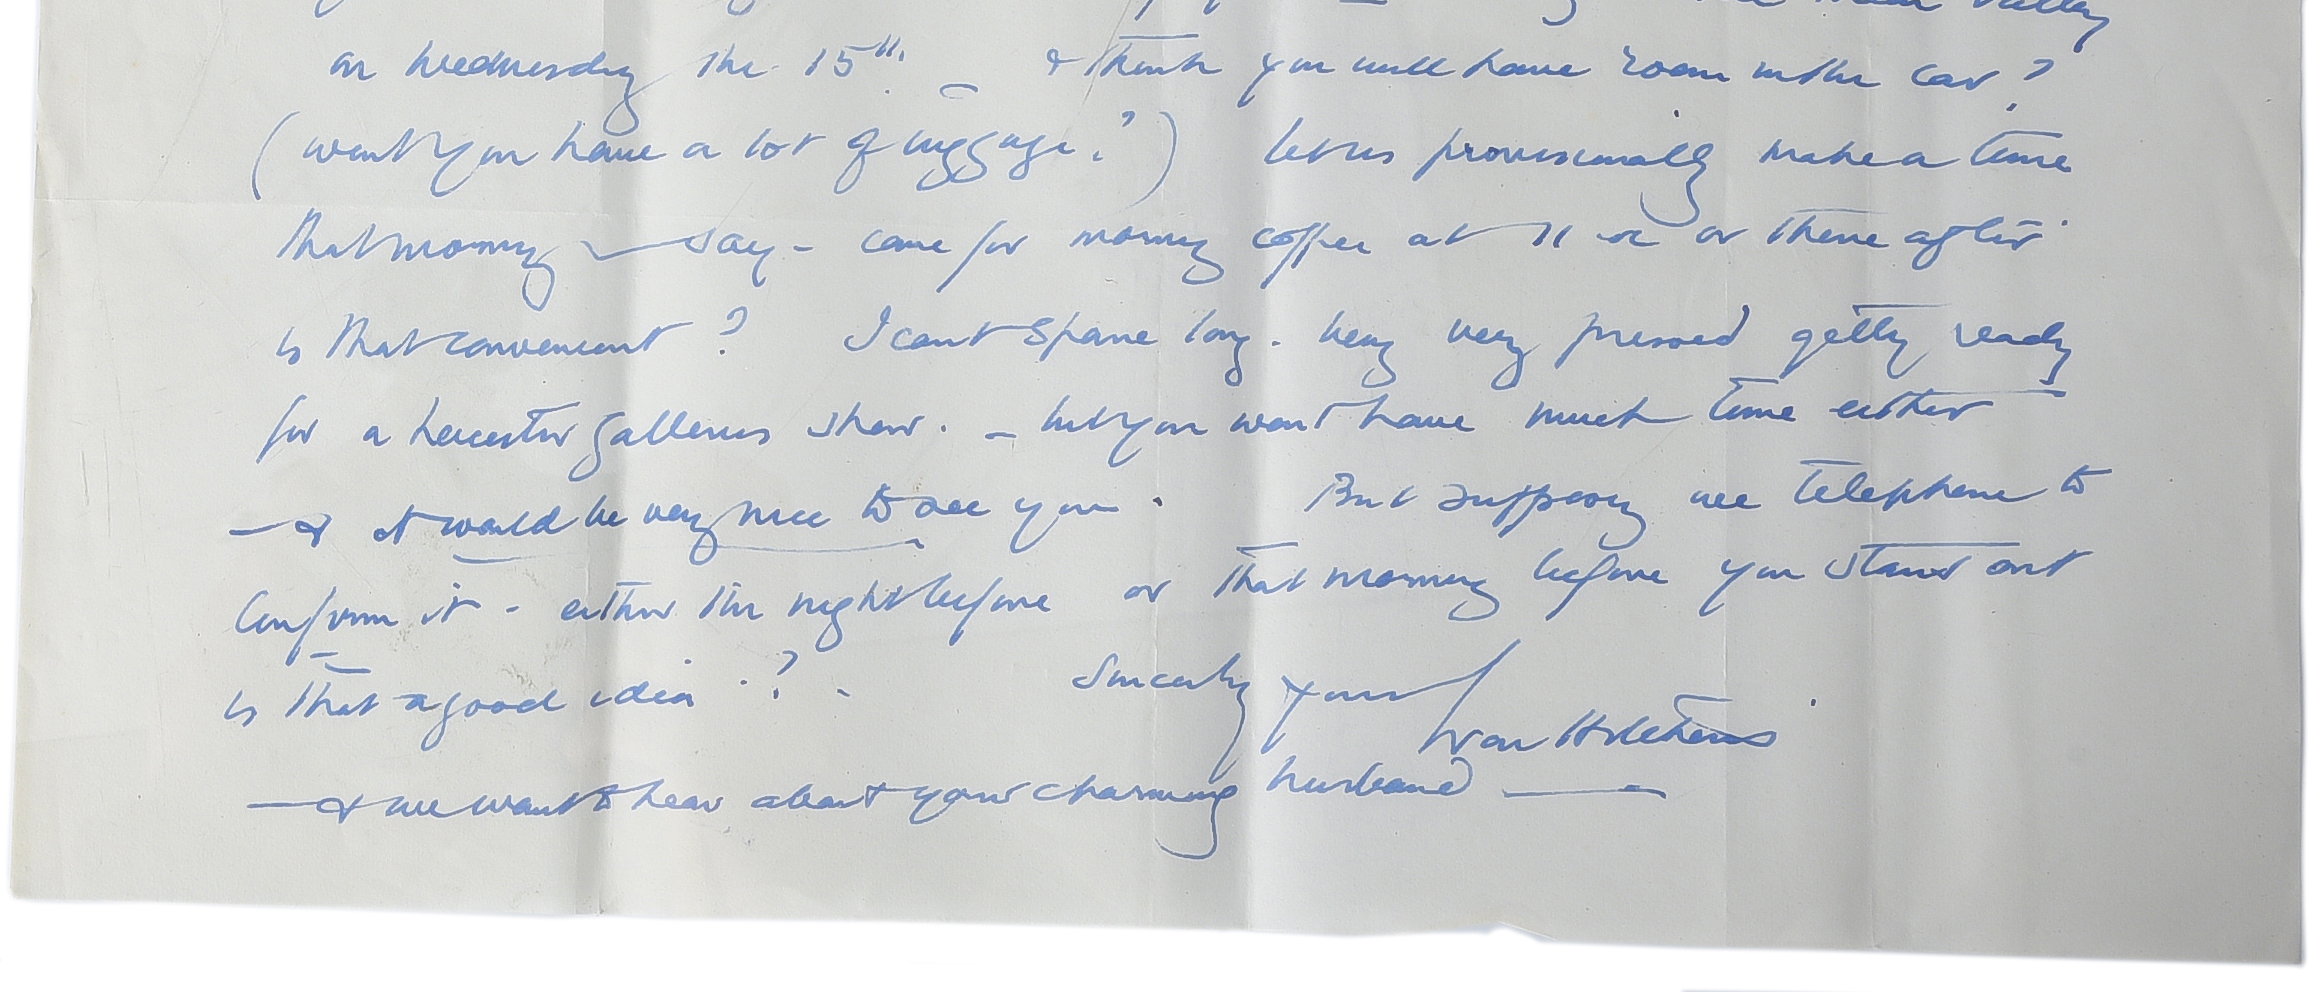 valley
on Wednesday the 15th. — & think you will have room in the car?
(won't you have a lot of luggage?) let us provisionally make a time
that morning — say — come for morning coffee at 11 or there after
is that convenient? I can't spare long. very very pressed getting ready
for a Leicester Galleries show. — but you won't have much time either
— & it would be very nice to see you. But supposing we telephone to
confirm it - either the night before or that morning before you start out
is that a good idea? - Sincerely yours
Ivon Hitchens
— & we want to hear about your charming husband —